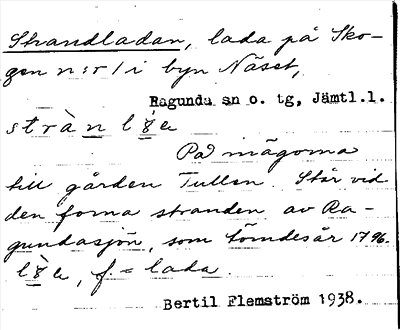 Strandladan, lada på Sko-
gen n:r 1 i byn Näset,
Ragunda sn o. tg, Jämtl.l.
stràn l
På mågorna
till gården Tullen. Står vid
den forna stranden av Ra-
gundasjön, som tömdes år 1796.
f. = lada.
Bertil Flemström 1938.